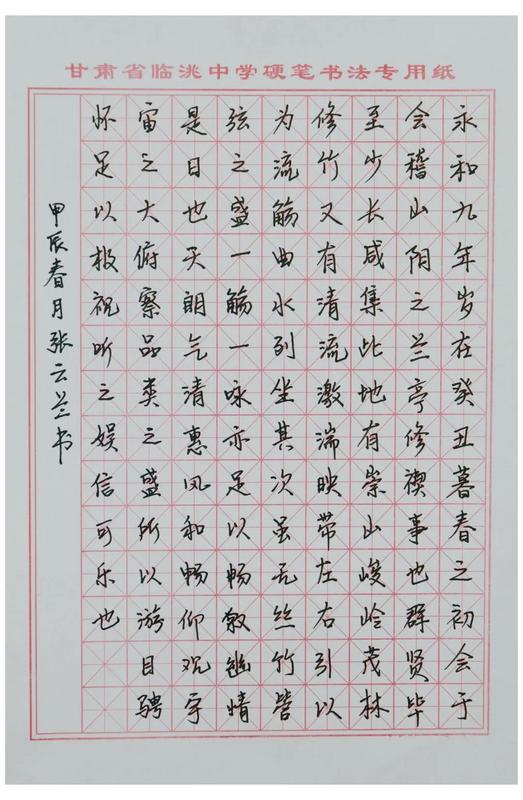 甘肃省临洮中学硬笔书法专用纸
永和九年岁在癸丑暮春之初会于
会稽山阴之兰亭修禊事也群贤毕
至少长咸集此地有崇山峻岭茂林
修竹又有清流激湍映带左右引以
为流觞曲水列坐其次虽无丝竹管
弦之盛一觞一咏亦足以畅叙幽情
是日也天朗气清惠风和畅仰观宇
宙之大俯察品类之盛所以游目骋
怀足以极视听之娱信可乐也
甲辰春月张云兰书